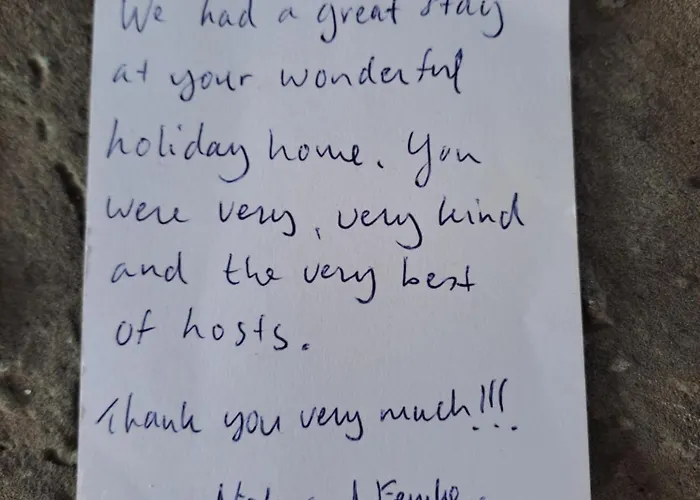 We had a great stay
at your wonderful
holiday home. You
were very, very kind
and the very best
of hosts.
Thank you very much!!!